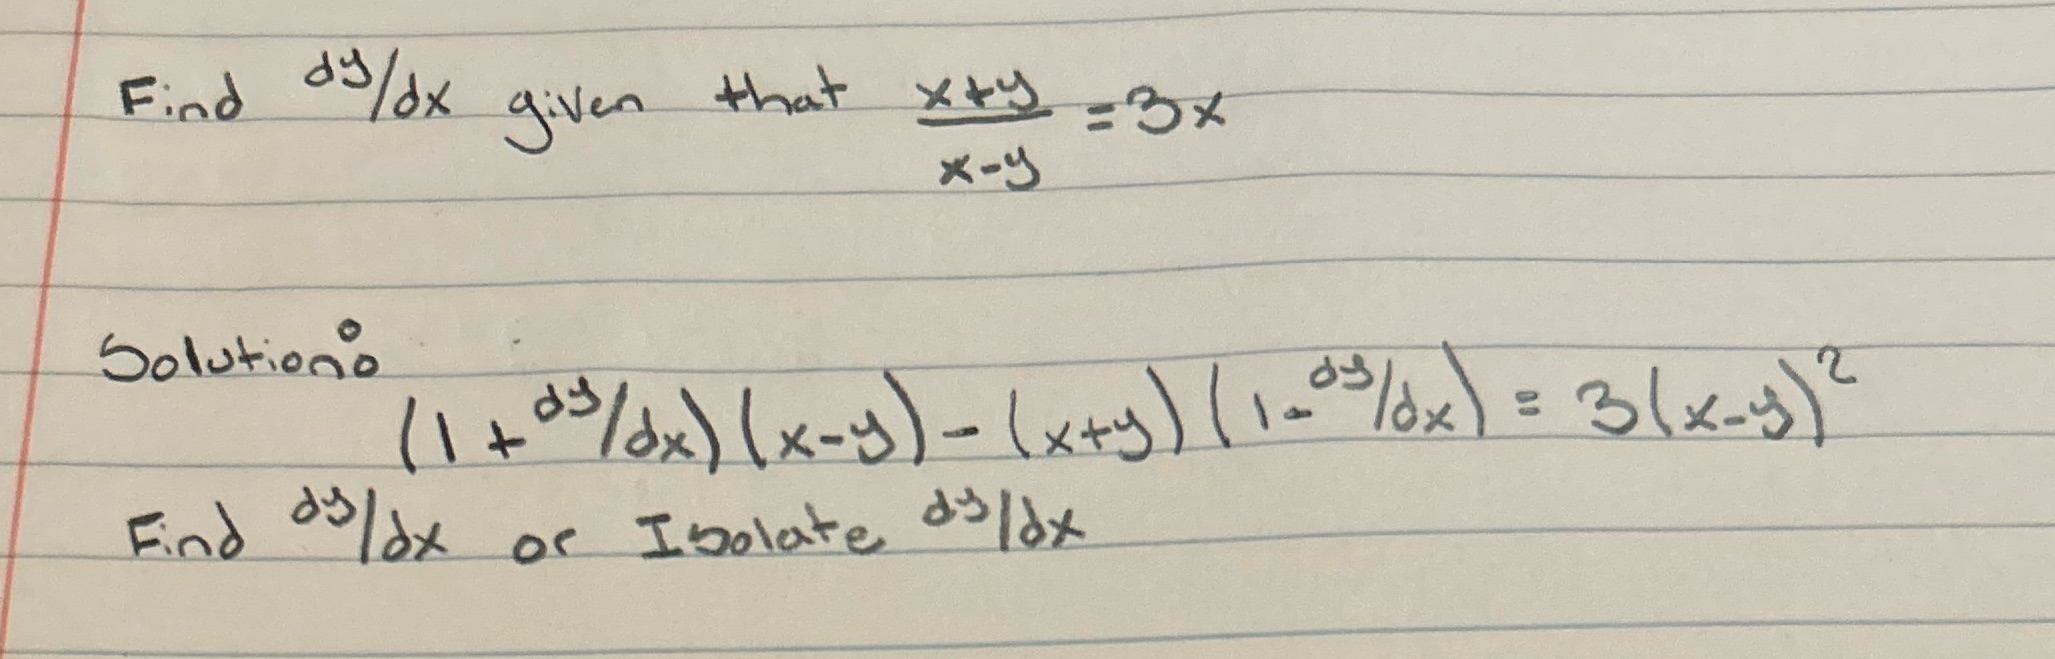 Find dy/dx given that x+y/x-y = 3x
Solution:
(1 + dy/dx)(x-y) - (x+y)(1 - dy/dx) = 3(x-y)²
Find dy/dx or Isolate dy/dx